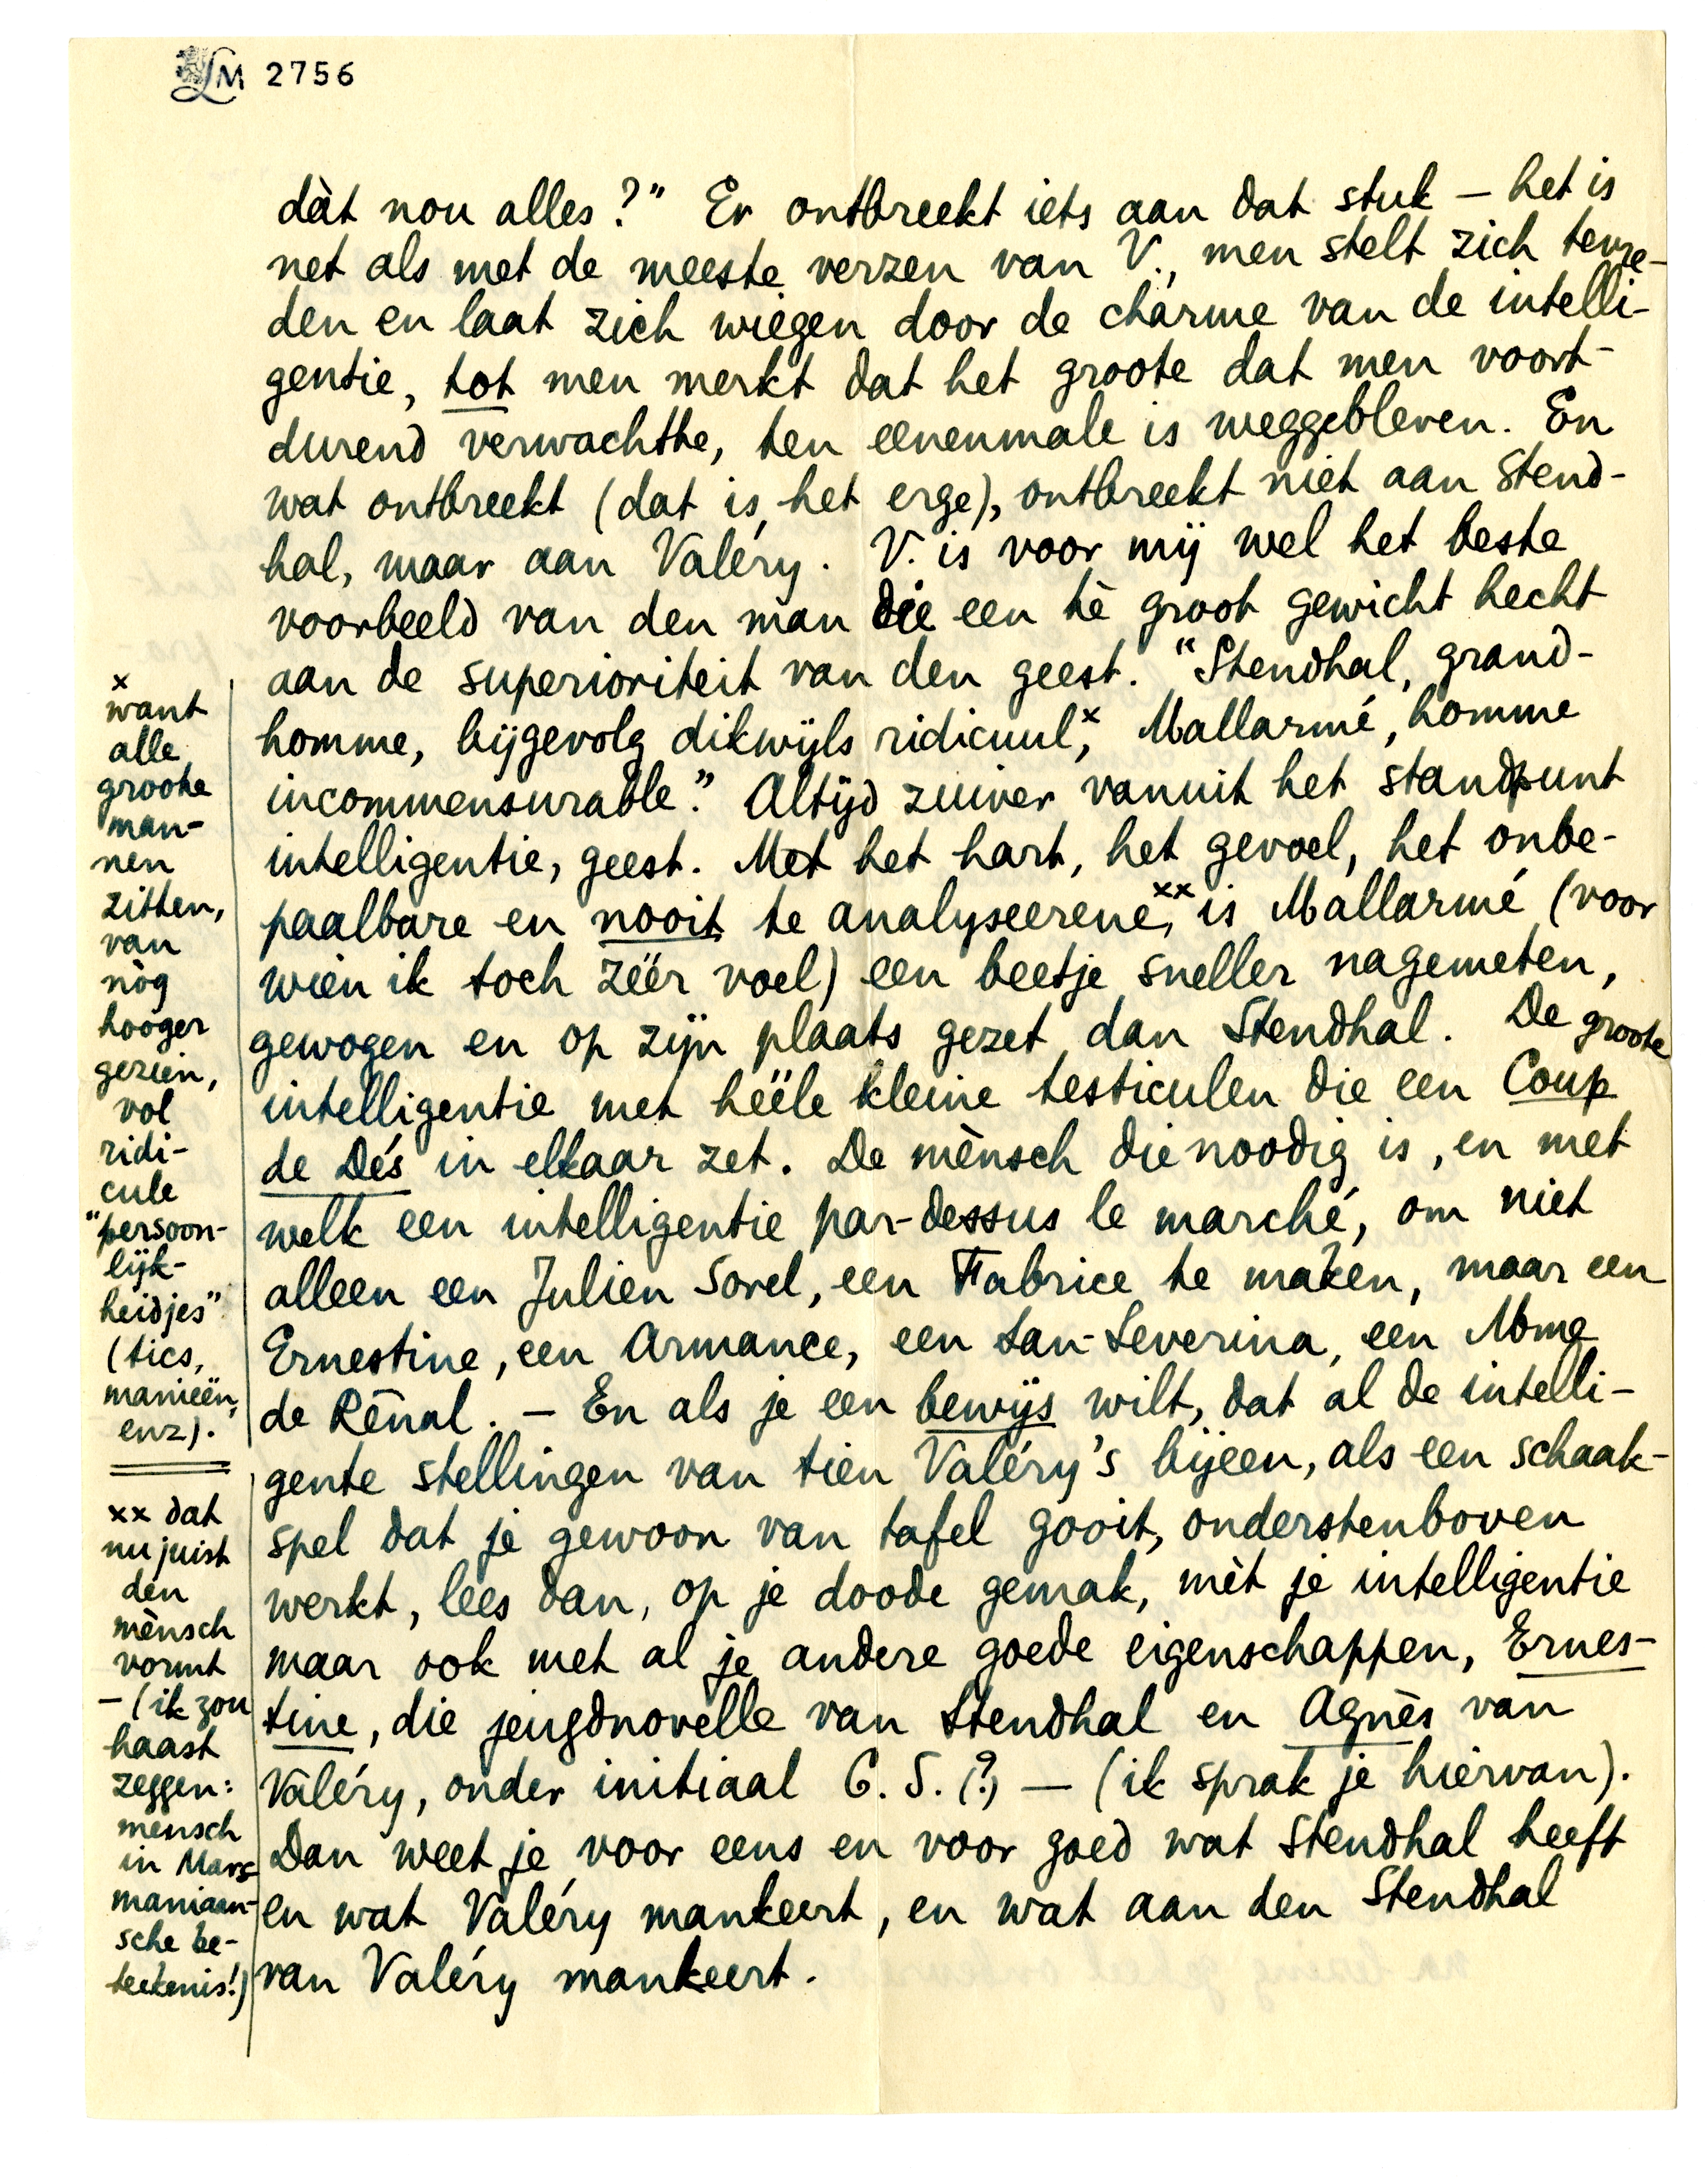 LM 2756
dàt nou alles?" Er ontbreekt iets aan dat stuk – het is
net als met de meeste verzen van V., men stelt zich tevre-
den en laat zich wiegen door de charme van de intelli-
gentie, tot men merkt dat het groote dat men voort-
durend verwachtte, ten eenenmale is weggebleven. En
wat ontbreekt (dat is het erge), ontbreekt niet aan Stend-
hal, maar aan Valéry. V. is voor mij wel het beste
voorbeeld van den man die een tè groot gewicht hecht
aan de superioriteit van den geest. "Stendhal, grand-
homme, bijgevolg dikwijls ridicuul,x Mallarmé, homme
incommensurable." Altijd zuiver vanuit het standpunt
intelligentie, geest. Met het hart, het gevoel, het onbe-
paalbare en nooit te analyseerene,xx is Mallarmé (voor
wien ik toch zéér voel) een beetje sneller nagemeten,
gewogen en op zijn plaats gezet dan Stendhal. De groote
intelligentie met hééle kleine testiculen die een Coup
de Dés in elkaar zet. De mènsch die noodig is, en met
welk een intelligentie par-dessus le marché, om niet
alleen een Julien Sorel, een Fabrice te maken, maar een
Ernestine, een Armance, een San-Severina, een Mme
de Rênal. – En als je een bewijs wilt, dat al de intelli-
gente stellingen van tien Valéry's bijeen, als een schaak-
spel dat je gewoon van tafel gooit, onderstenboven
werkt, lees dan, op je doode gemak, mèt je intelligentie
maar ook met al je andere goede eigenschappen, Ernes-
tine, die jeugdnovelle van Stendhal en Agnès van
Valéry, onder initiaal C. S. (?) – (ik sprak je hiervan).
Dan weet je voor eens en voor goed wat Stendhal heeft
en wat Valéry mankeert, en wat aan den Stendhal
van Valéry mankeert.
x
want
alle
groote
man-
nen
zitten,
van
nòg
hooger
gezien,
vol
ridi-
cule
"persoon-
lijk-
heidjes"
(tics,
manieën,
enz).
xx dat
nu juist
den
mènsch
vormt
– (ik zou
haast
zeggen:
mensch
in Mars-
maniaan-
sche be-
teekenis!)